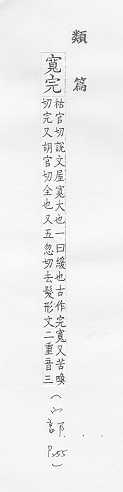 類篇
寬完
枯官切說文屋寬大也一曰緩也古作完寬又苦喚
切完又胡官切全也又五忽切去髮形文二重音三
P.255